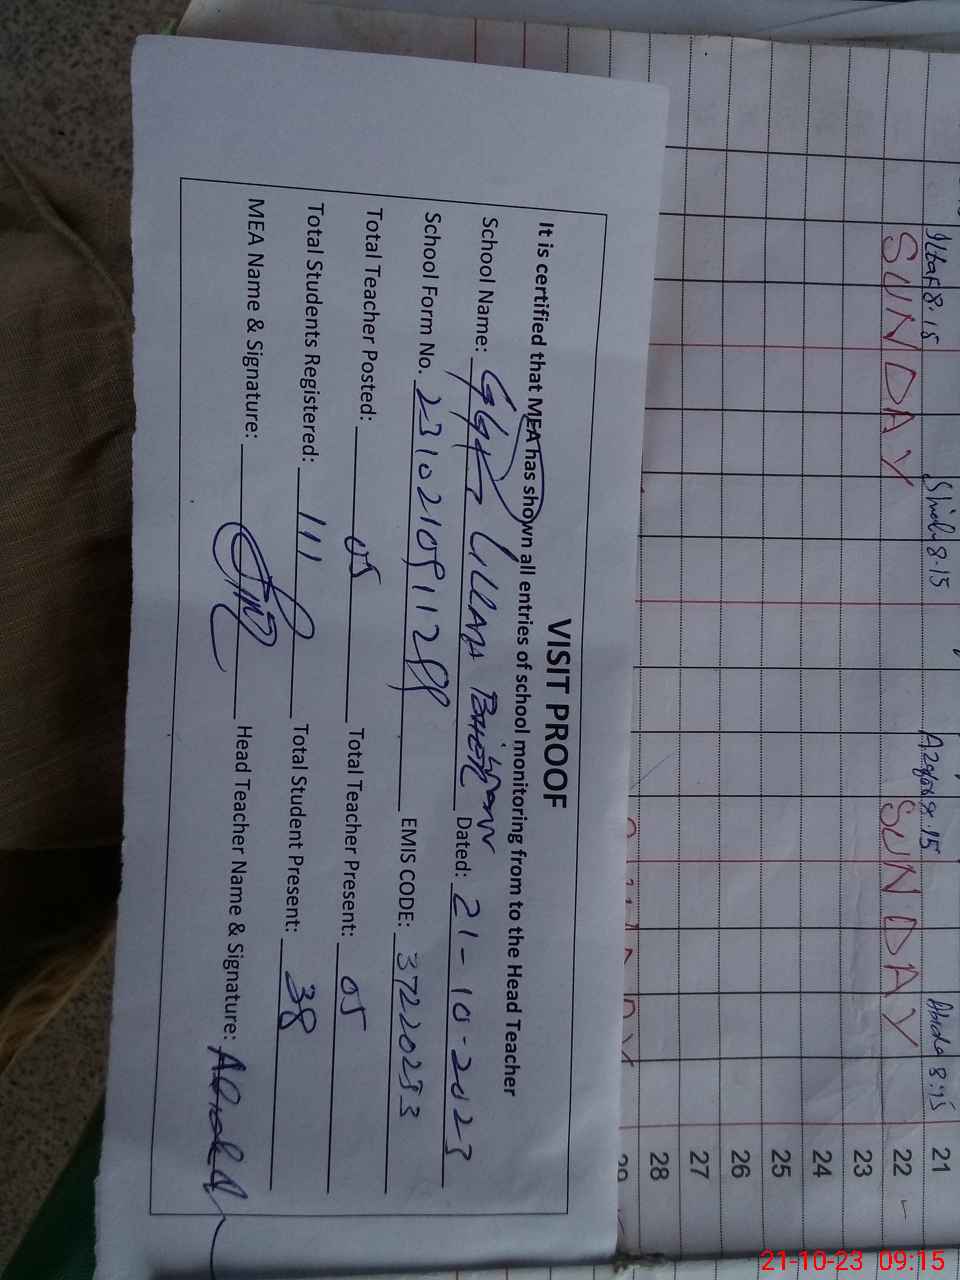 VISIT PROOF
It is certified that MEA has shown all entries of school monitoring from to the Head Teacher
School Name: Dated: 21-10-2023
School Form No. 2310210511288 EMIS CODE: 37220253
Total Teacher Posted: 05 Total Teacher Present: 05
Total Students Registered: 111 Total Student Present: 38
MEA Name & Signature: Head Teacher Name & Signature:
8.15 8.15 8.15 Abida 8:45 21
SUNDAY SUNDAY 22
23
24
25
26
27
28
29
21-10-23 09:15